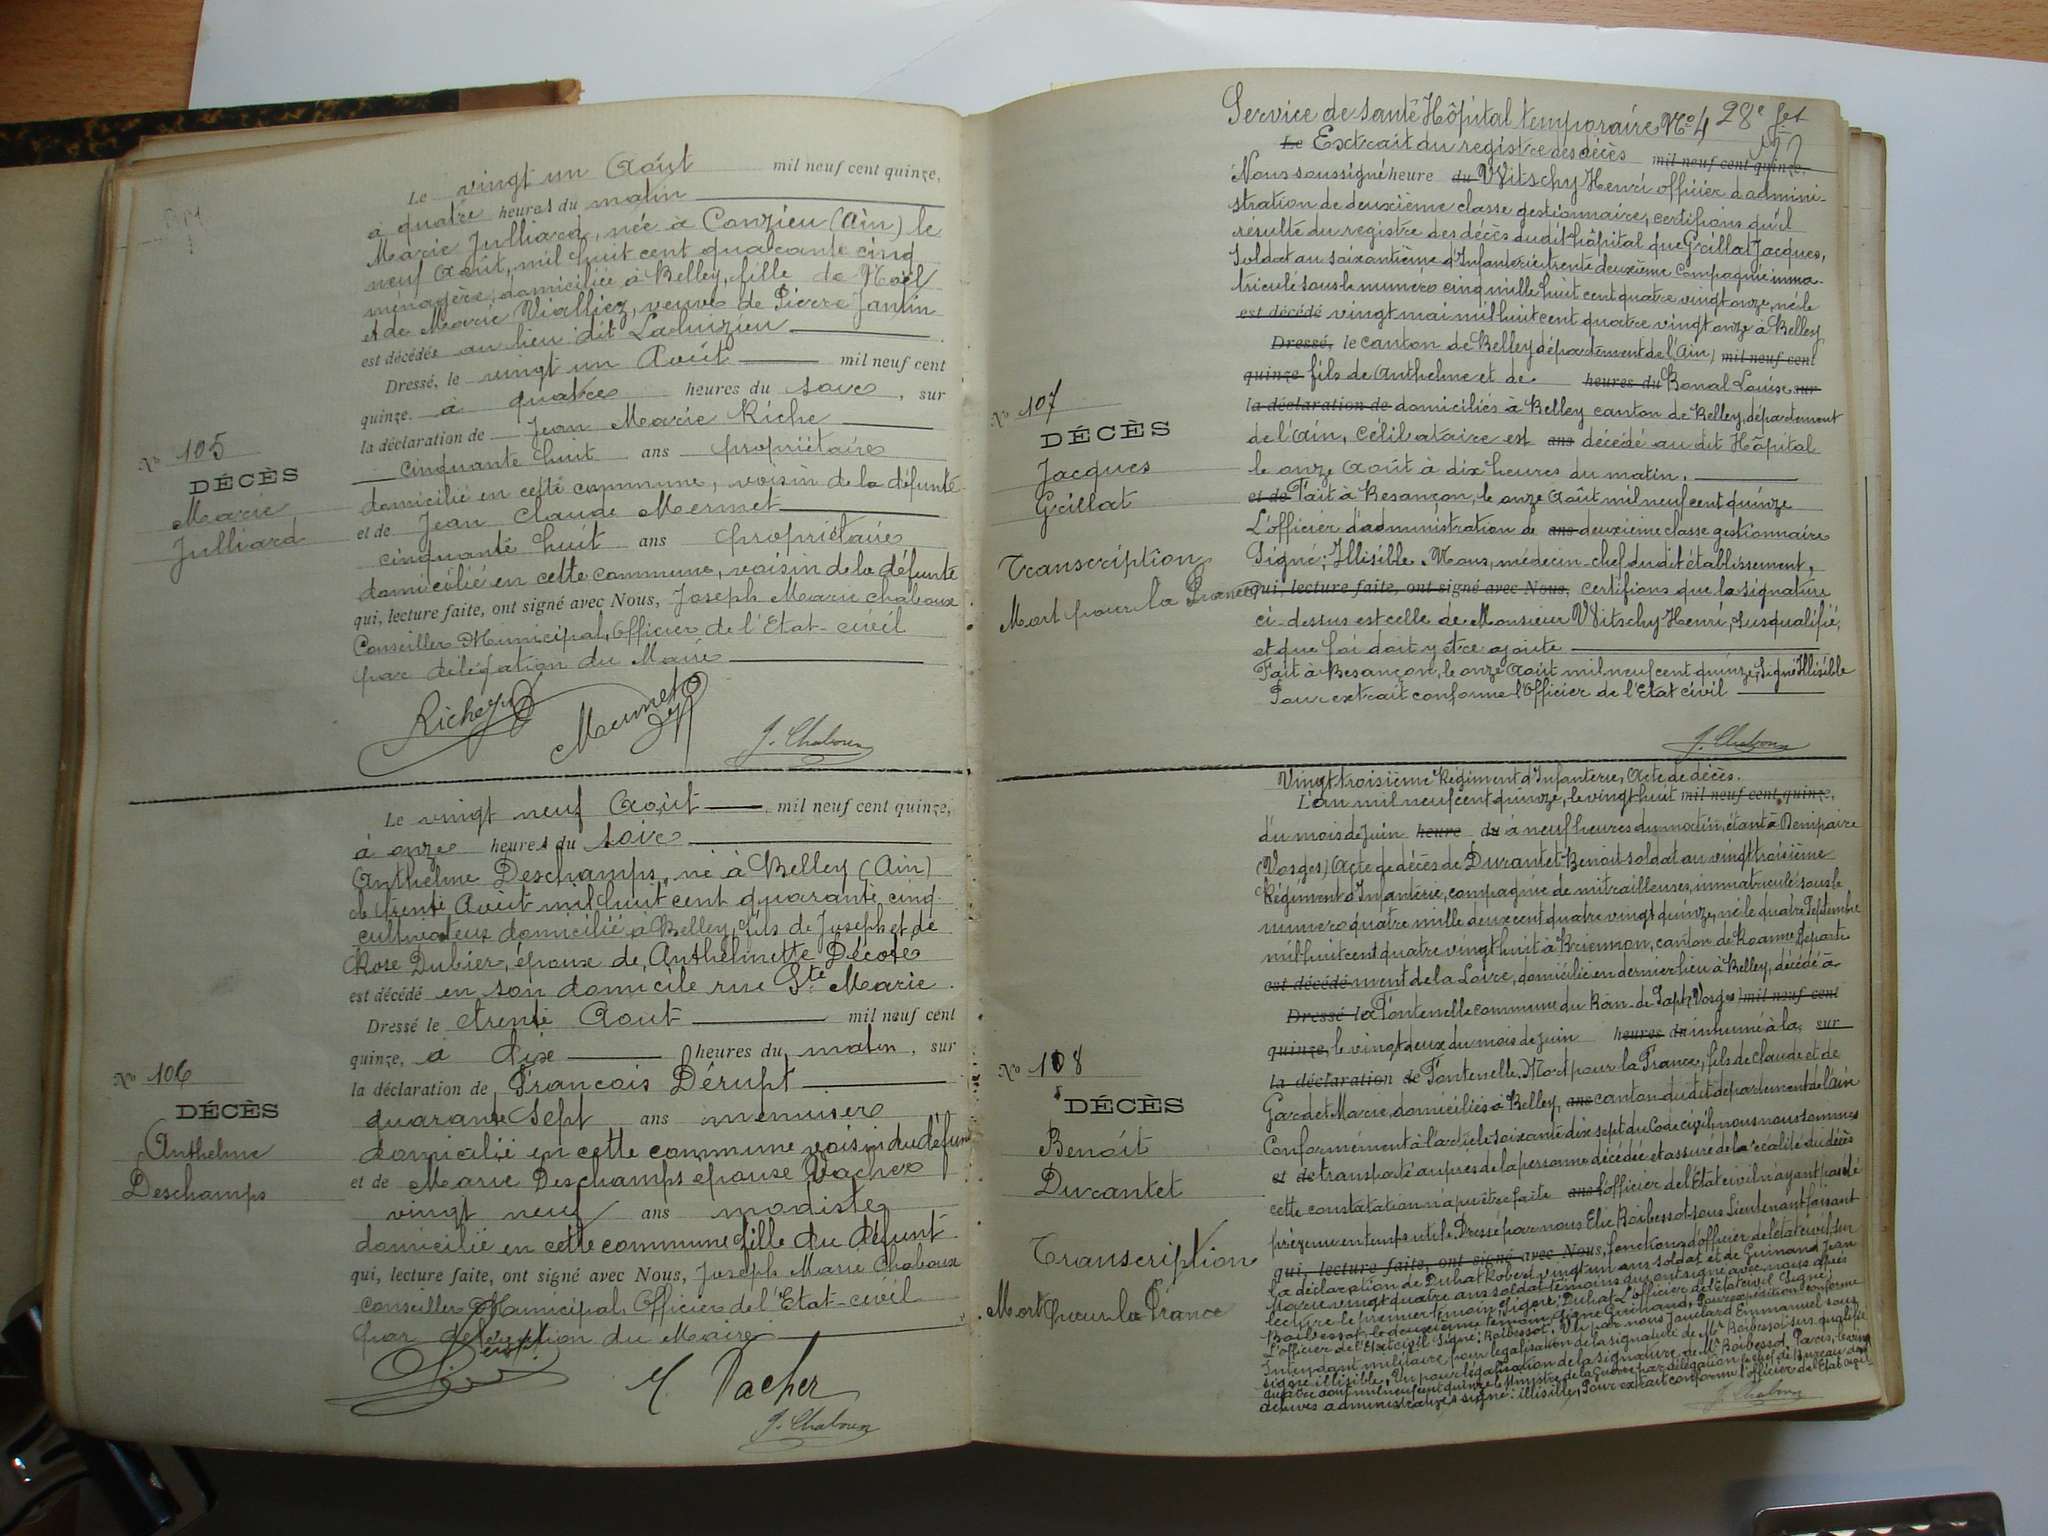 Le vingt un Août mil neuf cent quinze,
à quatre heures du matin
Marie Julliard, née à Conzieu (Ain) le
neuf Août, mil huit cent quarante cinq
ménagère, domiciliée à Belley, fille de Noël
et de Marie Vialliez, veuve de Pierre Jantin
est décédée au lieu dit
Dressé, le vingt un Août mil neuf cent
quinze. à quatre heures du soir, sur
la déclaration de Jean Marie Riche
cinquante huit ans propriétaire
No 105
DÉCÈS
Marie
Julliard
domicilié en cette commune, voisin de la défunte
et de Jean Claude Mermet
cinquante huit ans propriétaire
domicilié en cette commune, voisin de la défunte
qui, lecture faite, ont signé avec Nous, Joseph Marie Chaboux
Conseiller Municipal, Officier de l'Etat-civil
par délégation du Maire
Riche
Mermet
J. Chaboux
Le vingt neuf Août mil neuf cent quinze,
à onze heures du soir
Anthelme Deschamps, né à Belley (Ain)
le trente Août mil huit cent quarante cinq
cultivateur domicilié à Belley, fils de Joseph et de
Rose Dubier, époux de Anthelmette Décoté
est décédé en son domicile rue Ste Marie.
Dressé le trente Aout mil neuf cent
quinze, à dix heures du matin, sur
la déclaration de François Dérupt
No 106
DÉCÈS
Anthelme
Deschamps
quarante sept ans menuisier
domicilié en cette commune voisin du défunt
et de Marie Deschamps epouse Vacher
vingt neuf ans modiste
domicilié en cette commune fille du défunt
qui, lecture faite, ont signé avec Nous, Joseph Marie Chaboux
conseiller Municipal, Officier de l'Etat-civil
par délégation du Maire
M Vacher
J. Chaboux
Service de santé Hôpital temporaire No 4 28e fet
Le Extrait du registre des décès mil neuf cent quinze.
Nous soussigné heure du Witschy Henri officier d'admini-
stration de deuxième classe gestionnaire, certifions qu'il
résulte du registre des décès dudit hôpital que Grillat Jacques,
Soldat au soixantième d'Infanterie trente deuxième Compagnie imma-
triculé sous le numéro cinq mille huit cent quatre vingt onze, né le
est décédé vingt mai mil huit cent quatre vingt onze à Belley
Dressé, le canton de Belley département de l'Ain, mil neuf cent
quinze fils de Anthelme et de heures du Bonal Louise sur
la déclaration de domiciliés à Belley canton de Belley, département
de l'Ain, célibataire est ans décédé au dit Hôpital
le onze Août à dix heures du matin.
et de Fait à Besançon, le onze Août mil neuf cent quinze
L'officier d'administration de ans deuxième classe gestionnaire
Signé: Illisible. Nous, médecin-chef dudit établissement,
qui, lecture faite, ont signé avec Nous, certifions que la signature
ci-dessus est celle de Monsieur Witschy Henri, susqualifié,
et que foi doit y être ajoutée
Fait à Besançon, le onze Août mil neuf cent quinze, signé Illisible
Pour extrait conforme l'Officier de l'Etat civil
No 107
DÉCÈS
Jacques
Grillat
Transcription
Mort pour la France
J. Chaboux
Vingt troisième Régiment d'Infanterie, Acte de décès.
L'an mil neuf cent quinze, le vingt huit mil neuf cent quinze,
du mois de Juin heure du à neuf heures du matin, étant à Denipaire
(Vosges) Acte de décès de Durantet Benoit soldat au vingt troisième
Régiment d'Infanterie, compagnie de mitrailleuses, immatriculé sous le
numero quatre mille deux cent quatre vingt quinze, né le quatre Septembre
mil huit cent quatre vingt huit à Briennon, canton de Roanne Départe
est décédé ment de la Loire, domicilié en dernier lieu à Belley, décédé à
Dressé la Fontenelle commune du Ban-de-Sapt, Vosges, mil neuf cent
quinze, le vingt deux du mois de juin heures du inhumé à la, sur
la déclaration de Fontenelle, Mort pour la France, fils de Claude et de
Gardet Marie, domiciliés à Belley, ans canton dudit département de l'Ain
Conformément à l'article soixante dix sept du Code civil, nous nous sommes
et de transporté auprès de la personne décédée et assuré de la réalité du décès
cette constatation n'a pu être faite ans l'officier de l'Etat civil n'ayant pas été
prévenu en temps utile. Dressé par nous Elie Boibessot sous-lieutenant faisant
qui, lecture faite, ont signé avec Nous, fonctions d'officier de l'état civil sur
la déclaration de Duhat Robert vingt un ans soldat et de Guinand Jean
Marie vingt quatre ans soldat témoins qui ont signé avec nous après
lecture le premier témoin signé: Duhat L'officier de l'Etat civil Signé:
Boibessot, le deuxième témoin signé Guinand, Pour expédition conforme
L'officier de l'Etat civil Signé: Boibessot. Vu par nous Jaulard Emmanuel sous
Intendant militaire pour légalisation de la signature de Mr Boibessot sus qualifié
signé illisible. Vu pour légalisation de la signature de Mr Boibessot, Paris, le vingt
quatre août mil neuf cent quinze le Ministre de la guerre par délégation le chef de Bureau des
archives administratives signé: illisible, Pour extrait conforme l'officier de l'Etat civil
No 108
DÉCÈS
Benoît
Durantet
Transcription
Mort pour la France
J. Chaboux